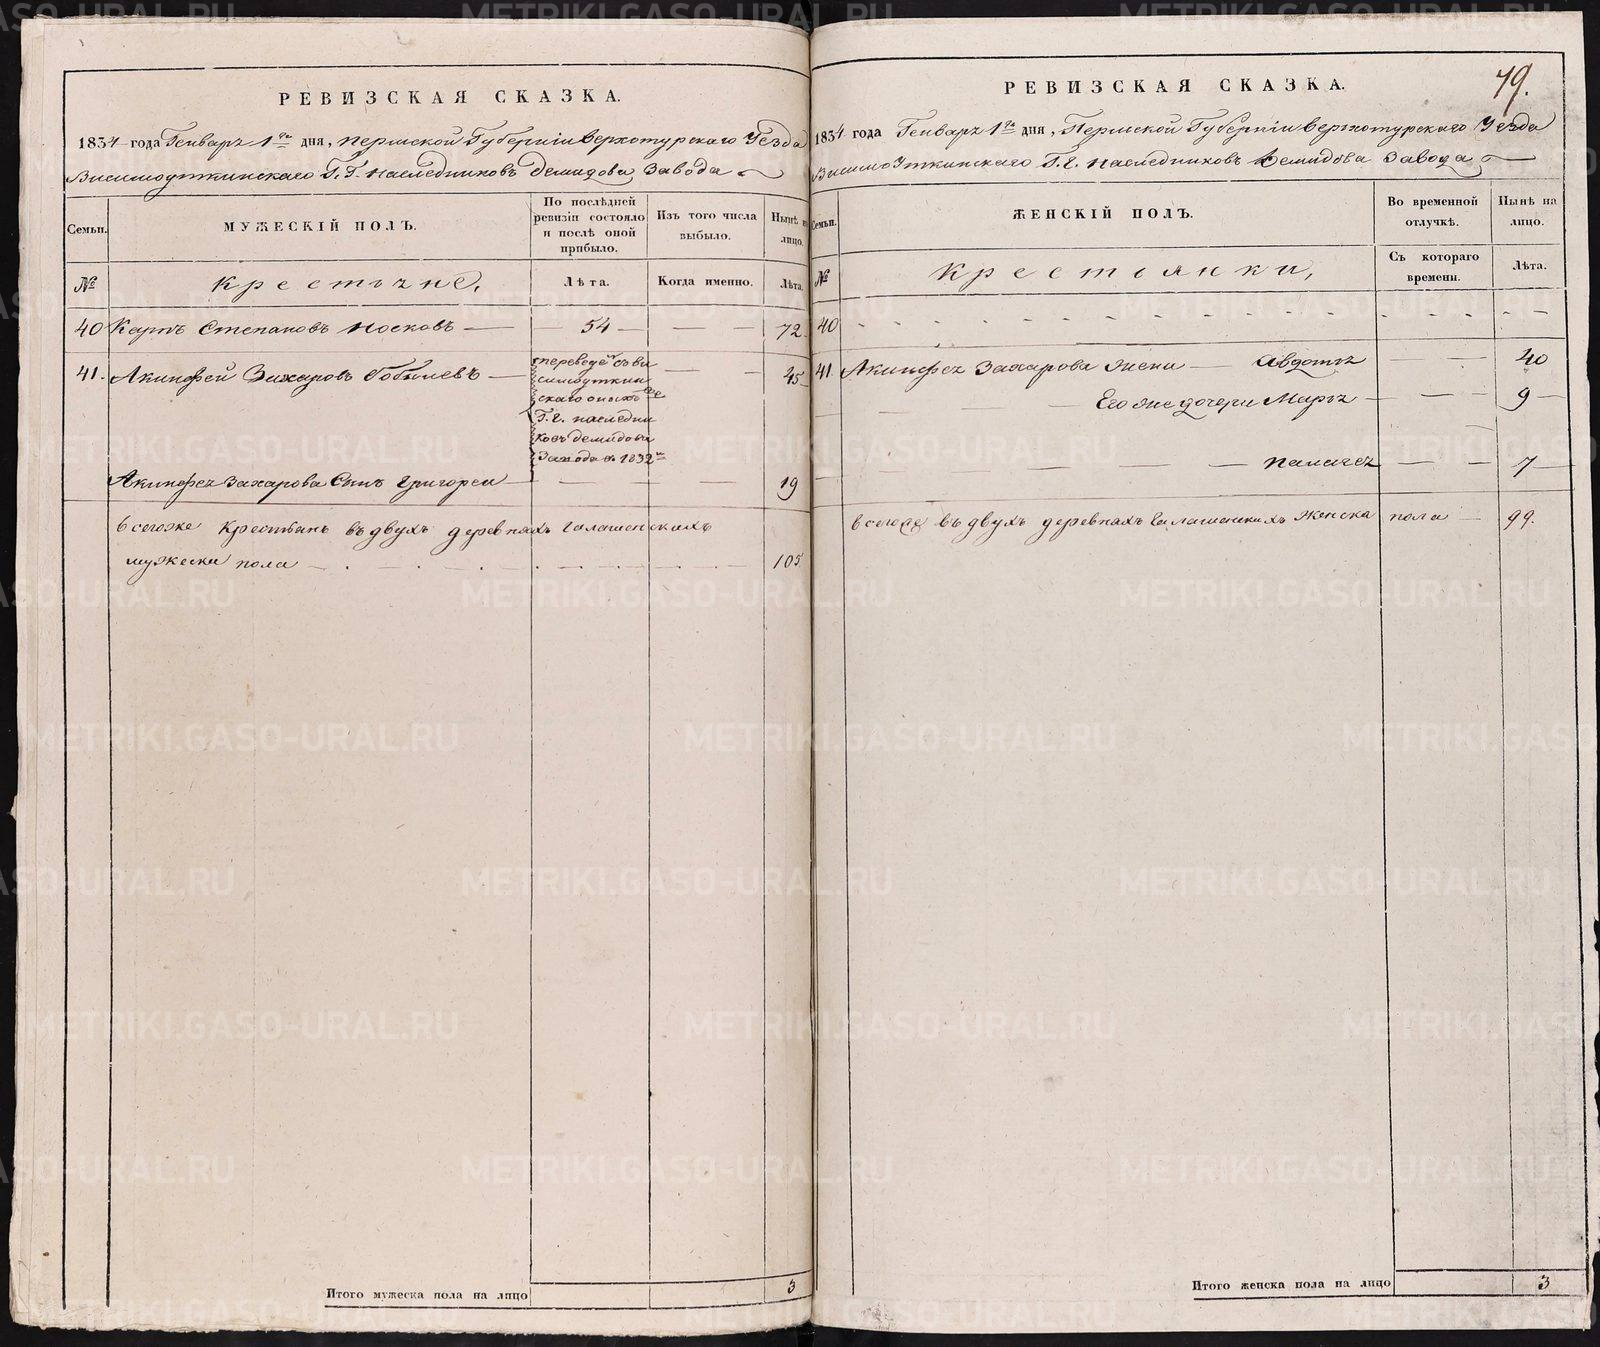 РЕВИЗСКАЯ СКАЗКА.
1834 года Генваря 1го дня, Пермской Губерніи Верхотурскаго Уезда
Висимоуткинскаго Г. Г. Наследниковъ Демидова Завода
Семьи.
МУЖЕСКІЙ ПОЛЪ.
По послѣдней ревизіи состояло и послѣ оной прибыло.
Изъ того числа выбыло.
Нынѣ на лицо.
№
Крестьяне,
Лѣта.
Когда именно.
Лѣта.
40 Карпъ Степановъ Носковъ — 54 — — 72
41. Акинфей Захаровъ Гобылевъ — — 45
переведенъ съ Ви
симоуткин
скаго
Г. Г. наследни
ковъ Демидова
Завода въ 1832
Акинфея Захарова Сынъ Григореи — — 19
всегоже Крестьянъ въ двухъ деревняхъ Галашенскихъ
мужеска пола — 105
Итого мужеска пола на лицо 3
79.
РЕВИЗСКАЯ СКАЗКА.
1834 года Генваря 1го дня, Пермской Губерніи Верхотурскаго Уезда
ВисимоУткинскаго Г. Г. Наследниковъ Демидова Завода
Семьи.
ЖЕНСКІЙ ПОЛЪ.
Во временной отлучкѣ.
Нынѣ на лицо.
№
Крестьянки,
Съ котораго времени.
Лѣта.
40
41 Акинфея Захарова жена — Авдотья — — 40
Его же дочери Марья — — 9
— Палагея — — 7
всегоже въ двухъ деревняхъ Галашенскихъ Женска пола — 99.
Итого женска пола на лицо 3
METRIKI.GASO-URAL.RU